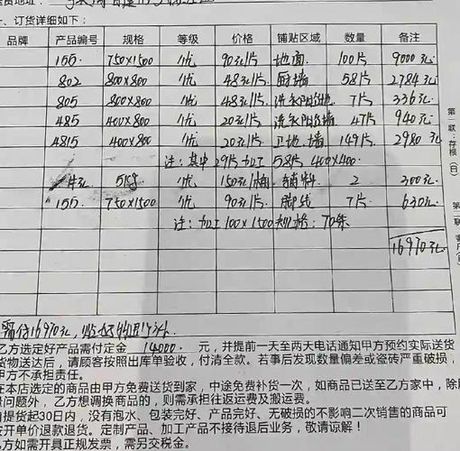 一、订货详细如下：
品牌 产品编号 规格 等级 价格 铺贴区域 数量 备注
155 750x1500 优 90元/片 地面 100片 9000元
802 800x800 优 48元/片 厨墙 58片 2784元
805 800x800 优 48元/片 7片 336元
485 400x800 优 20元/片 47片 940元
4815 400x800 优 20元/片 卫地墙 149片 2980元
注：其中29片加工58片400x400
5kg 优 150元/桶 辅料 2 300元
155 750x1500 优 90元/片 脚线 7片 630元
注：加工100x1500规格：70条
16970元
第一联：存根（白）
16970元
乙方选定好产品需付定金 14000 元，并提前一天至两天电话通知甲方预约实际送货
货物送达后，请顾客按照出库单验收，付清全款。若事后发现数量偏差或瓷砖严重破损，
方不承担责任。
在本店选定的商品由甲方免费送货到家，中途免费补货一次，如商品已送至乙方家中，除质
量问题外，乙方想调换商品的，则需承担往返运费及搬运费。
自提货起30日内，没有泡水、包装完好、产品完好、无破损的不影响二次销售的商品可
按开单价退款退货。定制产品、加工产品不接待退后业务，敬请谅解！
乙方如需开具正规发票，需另交税金。